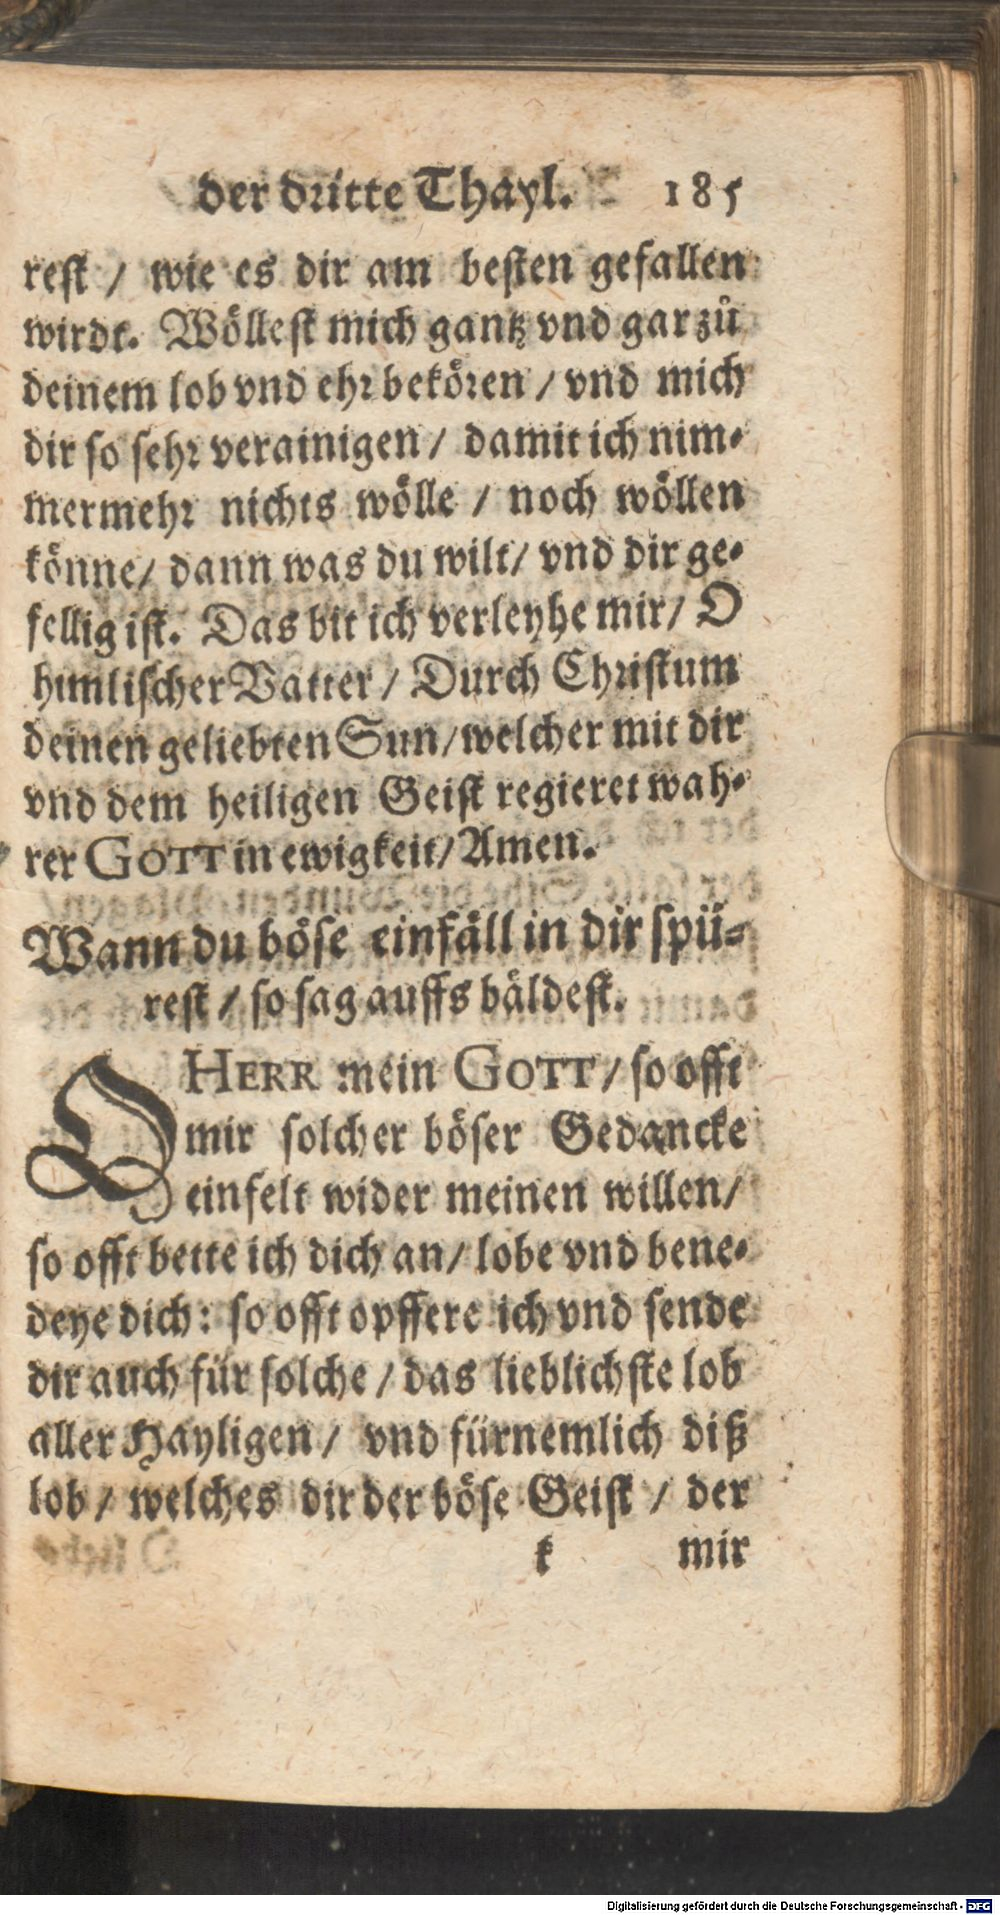 der dritte Thayl. 185
rest / wie es dir am besten gefallen
wirdt. Wöllest mich gantz vnd gar zů
deinem lob vnd ehr bekören / vnd mich
dir so sehr verainigen / damit ich nim-
mermehr nichts wölle / noch wöllen
könne / dann was du wilt / vnd dir ge-
fellig ist. Das bit ich verleyhe mir / O
himlischer Vatter / Durch Christum
deinen geliebten Sun / welcher mit dir
vnd dem heiligen Geist regieret wah-
rer GOTT in ewigkeit / Amen.
Wann du böse einfäll in dir spü-
rest / so sag auffs bäldest.
O HERR mein GOTT / so offt
mir solcher böser Gedancke
einfelt wider meinen willen /
so offt bette ich dich an / lobe vnd bene-
deye dich : so offt opffere ich vnd sende
dir auch für solche / das lieblichste lob
aller Hayligen / vnd fürnemlich diß
lob / welches dir der böse Geist / der
k mir
Digitalisierung gefördert durch die Deutsche Forschungsgemeinschaft - DFG